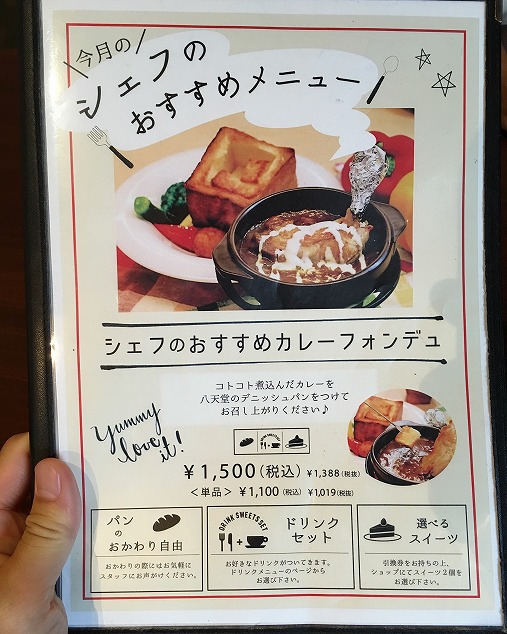 今月の
シェフの
おすすめメニュー
シェフのおすすめカレーフォンデュ
コトコト煮込んだカレーを
八天堂のデニッシュパンをつけて
お召し上がりください♪
yummy
love it!
DRINK SWEETS SET
¥1,500(税込) ¥1,388(税抜)
<単品> ¥1,100(税込) ¥1,019(税抜)
パン
の
おかわり自由
おかわりの際にはお気軽に
スタッフにお声がけください。
DRINK SWEETS SET
ドリンク
セット
お好きなドリンクがついてきます。
ドリンクメニューのページから
お選び下さい。
選べる
スイーツ
引換券をお持ちの上、
ショップにてスイーツ2個を
お選び下さい。